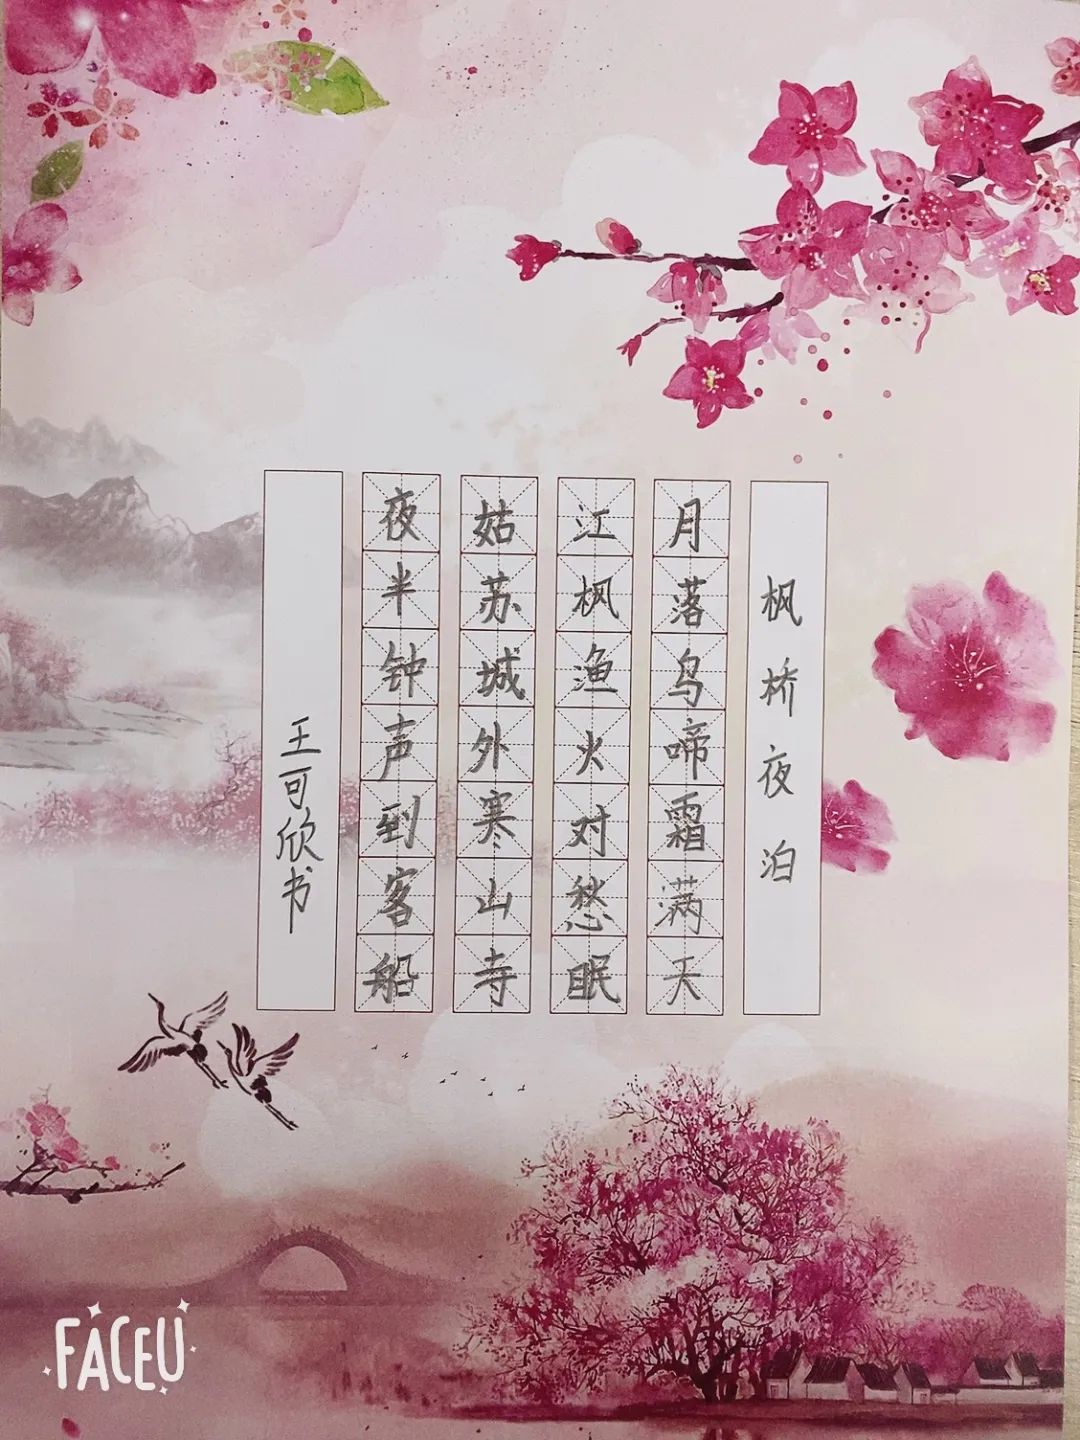 枫桥夜泊
月落鸟啼霜满天
江枫渔火对愁眠
姑苏城外寒山寺
夜半钟声到客船
王可欣书
FACEU